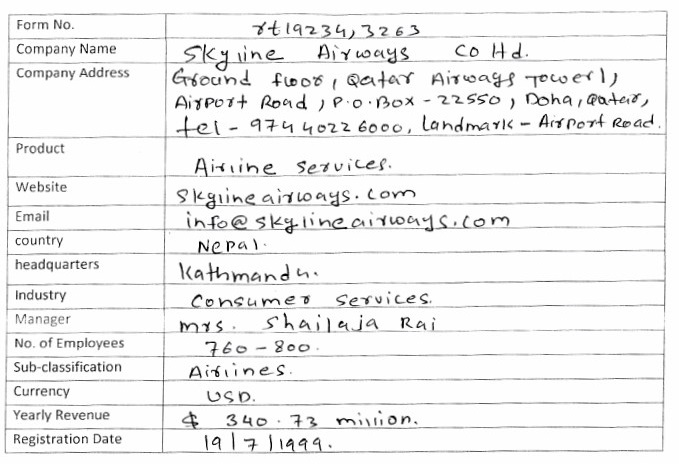 Form No. rt19234, 3263
Company Name Skyline Airways Co ltd.
Company Address Ground floor, Qatar Airways Tower 1,
Airport Road, P.O.Box - 22550, Doha, Qatar,
tel - 974 4022 6000, Landmark - Airport Road.
Product Airline Services.
Website Skylineairways.com
Email info@skylineairways.com
country Nepal.
headquarters Kathmandu.
Industry Consumer Services.
Manager mrs. Shailaja Rai
No. of Employees 760 - 800.
Sub-classification Airlines.
Currency USD.
Yearly Revenue $ 340.73 million.
Registration Date 19/7/1999.